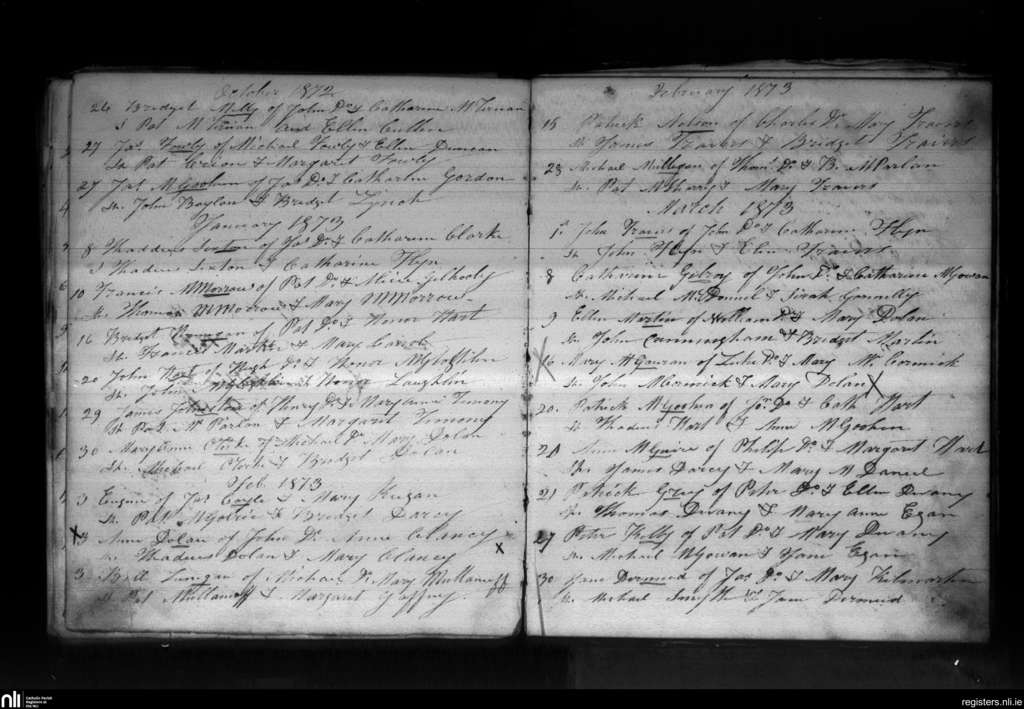 October 1872
24 Bridget Melly of John Do & Catharine McTernan
S Pat McTernan and Ellen Cullen
27 Jas Fowly of Michael Fowly & Ellen Duncan
Sr. Pat & Margaret Fowly
27 Jas McGoohan of Jas Do & Catharine Gordon
Sr. John Boylan & Bridget Lynch
January 1873
8 Thaddeus Sexton of Jas Do & Catharine Clarke
S Thadeus Sexton & Catharine Flyn
10 Francis McMorrow of Pat Do & Alice Gilhooly
Sr. Thomas McMorrow & Mary McMorrow
16 Bridget of Pat Do & Honor Hart
Sr. Francis & Mary
20 John Hart of Hugh Do & Honor
Sr. John & Honor Laughlin
29 James Johnston of Henry Do & Mary Anne Timony
Sr. Pat McParlan & Margaret Timony
30 Mary Anne Clarke of Michael Do Mary Dolan
Sr. Michael Clarke & Bridget Dolan
Feb. 1873
3 Eugene of Jas Coyle & Mary Keegan
Sr. Pat & Bridget Darcy
3 Anne Dolan of John Do Anne Clancy
Sr. Thadeus Dolan & Mary Clancy
3 Finigan of Michael Do Mary Mullaneff
S Pat Mullaneff & Margaret Gaffney.
February 1873
15 Patrick of Charles Do Mary Travers
Sr James Travers & Bridget Travers
23 Michael Mulligan of Thoms. Do & B. McParlan
Sr. Pat & Mary Travers
March 1873
1 John Travers of John Do & Catharine Flyn
Sr. John Flyn & Elin Travers
8 Catherine Gilroy of John Do & Catharine McGowan
Sr. Michael McDonnel & Sarah Connelly
9 Ellen Martin of William Do & Mary Dolan
Sr. John Cunningham & Bridget Martin
16 Mary McGauran of Luke Do & Mary McCormick
Sr. John McCormick & Mary Dolan
20. Patrick McGoohan of Jon. Do & Cath Hart
Sr Thadeus Hart & Anne McGoohan
21 Anne McGuire of Philip Do & Margaret Hart
Sr James Darcy & Mary McDaniel
21 Patrick Gray of Peter Do & Ellen Dwany
Sr. Thomas Dwany & Mary Anne Egan
27 Peter Kelly of Pat Do & Mary Dwany
Sr. Michael McGowan & Jane Egan
30 Jane Dermeid of Jas Do & Mary
Sr. Michael Smyth & Jane Dermeid
nli
Catholic Parish
Registers at
the NLI
registers.nli.ie